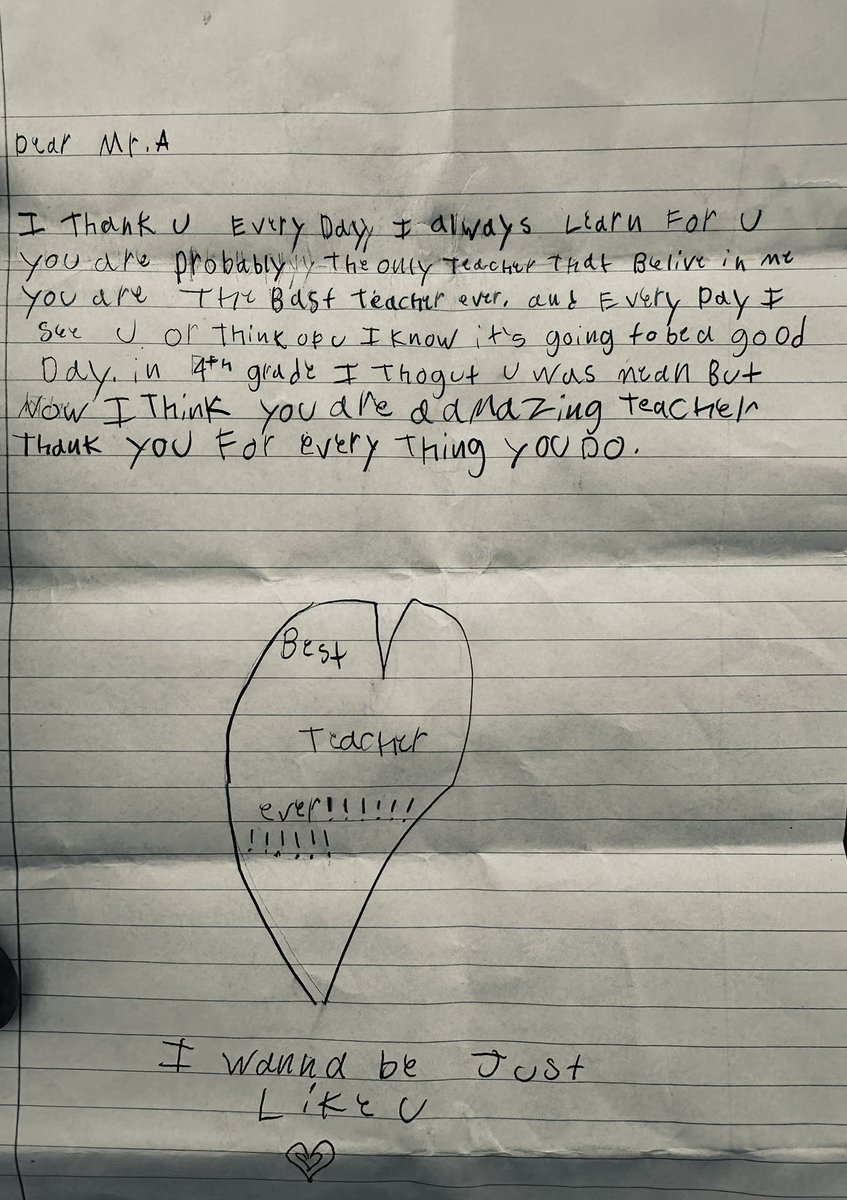 Dear Mr. A
I Thank U Every Day, I always Learn For U
you are probably, The only Teacher That Belive in me
you are The Bast Teacher ever. and Every Day I
see U or Think of U I know it's going to be a good
Day. in 4th grade I Thogut U was mean But
Now I Think you are a amazing Teacher
Thank you For every Thing you Do.
Best
Teacher
ever!!!!!!
!!!!!!
I wanna be Just
Like U